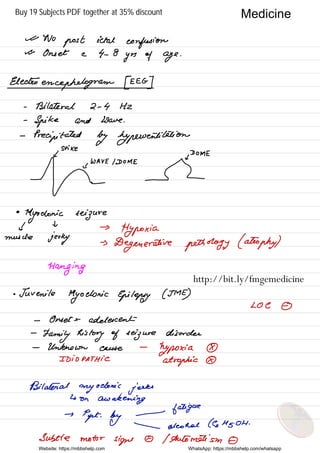 Buy 19 Subjects PDF together at 35% discount
Medicine
No post ictal confusion
Onset 4-8 yrs of age.
Electro encephelogram [EEG]
- Bilateral 2-4 Hz
- Spike and Wave.
- Precipitated by hyperventilation
SPIKE
WAVE / DOME
DOME
• Myoclonic seizure
muscle jerky
→ Hypoxia
→ Degenerative pathology (atrophy)
Hanging
http://bit.ly/fmgemedicine
• Juvenile Myoclonic Epilepsy (JME)
LOC ⊖
- Onset adolescent
- Family history of seizure disorder
- Unknown cause - hypoxia ⊗
IDIOPATHIC atrophic ⊗
Bilateral myoclonic jerks
↳ on awakening
→ Ppt. by fatigue
alcohol C2H5OH.
Subtle motor signs ⊖ / Automatism ⊖
Website: https://mbbshelp.com
WhatsApp: https://mbbshelp.com/whatsapp